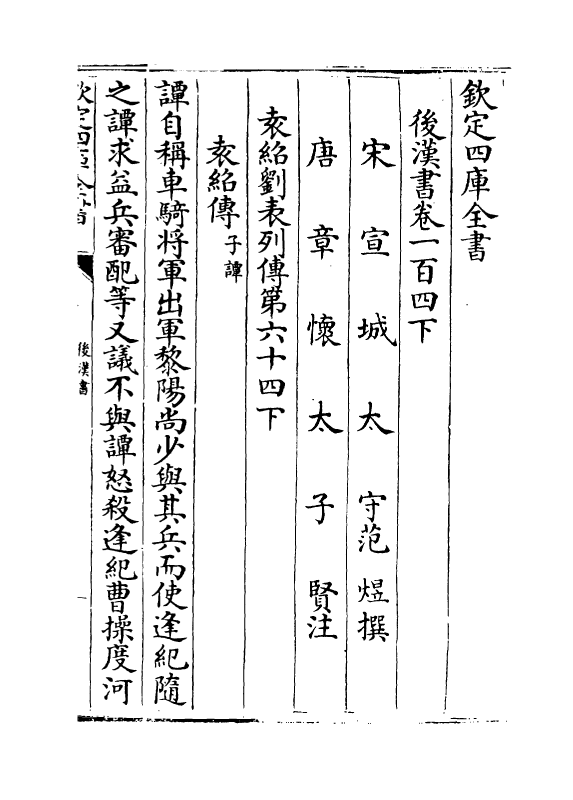 欽定四庫全書
後漢書卷一百四下
宋宣城太守范煜撰
唐章懷太子賢注
袁紹劉表列傳第六十四下
袁紹傳子譚
譚自稱車騎將軍出軍黎陽尚少與其兵而使逢紀隨
之譚求益兵審配等又議不與譚怒殺逢紀曹操度河
欽定四庫全書
後漢書